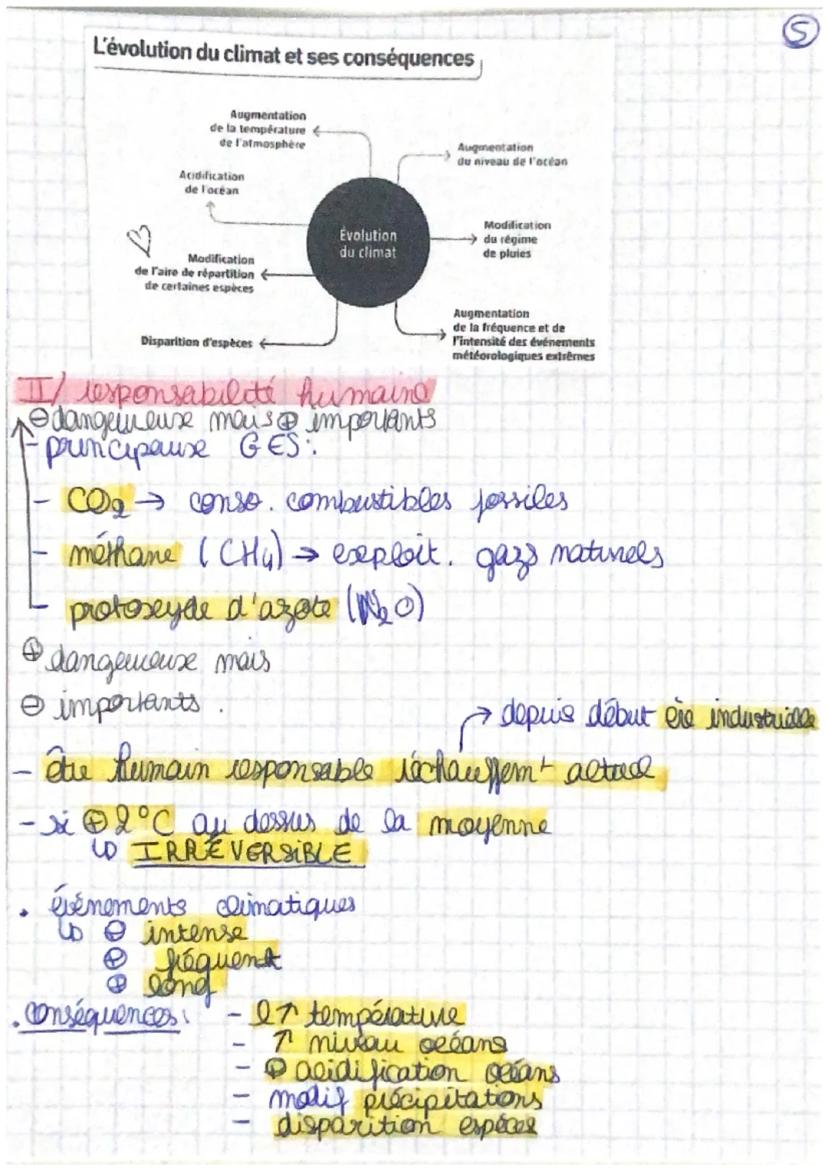 5
L'évolution du climat et ses conséquences
Augmentation
de la température
de l'atmosphère
Augmentation
du niveau de l'océan
Acidification
de l'océan
Évolution
du climat
Modification
du régime
de pluies
Modification
de l'aire de répartition
de certaines espèces
Augmentation
de la fréquence et de
l'intensité des événements
météorologiques extrêmes
Disparition d'espèces
II/ responsabilité humaine
⊖ dangereuse mais ⊕ importants
- principaux GES:
- CO₂ → conso. combustibles fossiles
- méthane (CH₄) → exploit. gazs naturels
- protoxyde d'azote (N₂O)
⊕ dangereuse mais
⊖ importants.
→ depuis début ère industrielle
- être humain responsable réchauffemt actuel
- si ⊕ 2°C au dessus de la moyenne
↳ IRRÉVERSIBLE
• événements climatiques
↳ ⊖ intense
⊕ fréquent
⊕ long
• conséquences: - ↑ température
- ↑ niveau océans
- ⊕ acidification océans
- modif précipitations
- disparition espèces